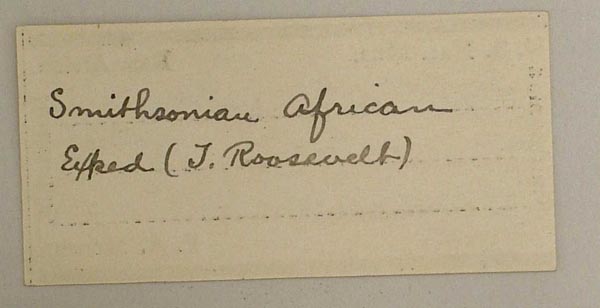 Smithsonian African
Exped (T. Roosevelt)